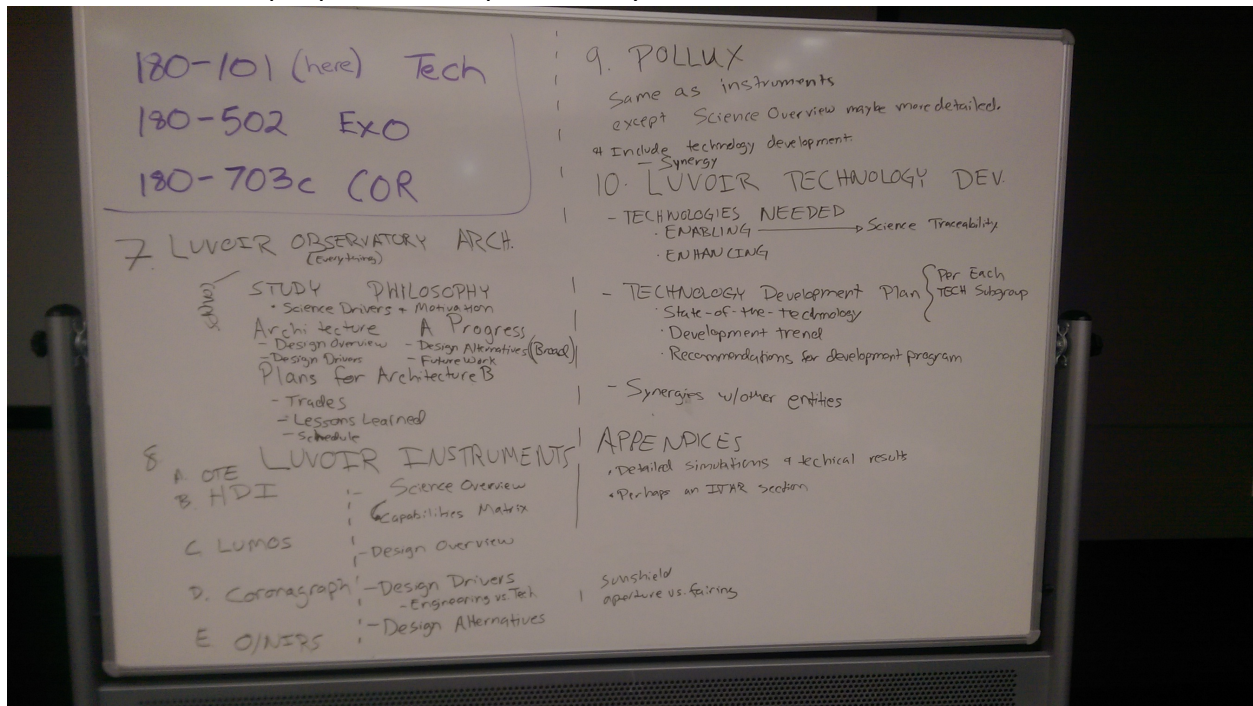 180-101 (here) Tech
180-502 EXO
180-703c COR
7. LUVOIR OBSERVATORY ARCH.
(Everything)
STUDY PHILOSOPHY
• Science Drivers + Motivation
Architecture A Progress
- Design Overview - Design Alternatives (Broad)
- Design Drivers - Future Work
Plans for Architecture B
- Trades
- Lessons Learned
- Schedule
8. LUVOIR INSTRUMENTS
A. OTE
B. HDI
C. LUMOS
D. Coronagraph
E. O/NIRS
- Science Overview
Capabilities Matrix
- Design Overview
- Design Drivers
- Engineering vs. Tech
- Design Alternatives
9. POLLUX
Same as instruments
except Science Overview maybe more detailed.
* Include technology development.
- Synergy
10. LUVOIR TECHNOLOGY DEV.
- TECHNOLOGIES NEEDED
• ENABLING → Science Traceability
• ENHANCING
- TECHNOLOGY Development Plan { Per Each
TECH Subgroup
• State-of-the-technology
• Development trend
• Recommendations for development program
- Synergies w/other entities
APPENDICES
• Detailed simulations & techical results
• Perhaps an ITAR section
sunshield
aperture vs. fairing